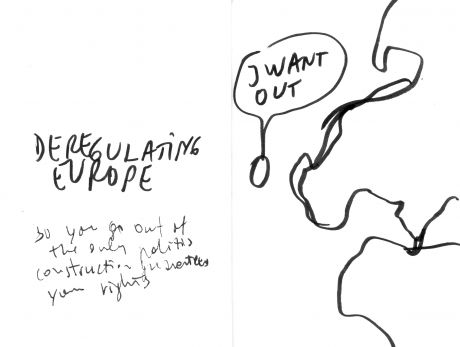 DEREGULATING
EUROPE
so you go out of
the only politic
construction guarantees
your rights
I WANT
OUT